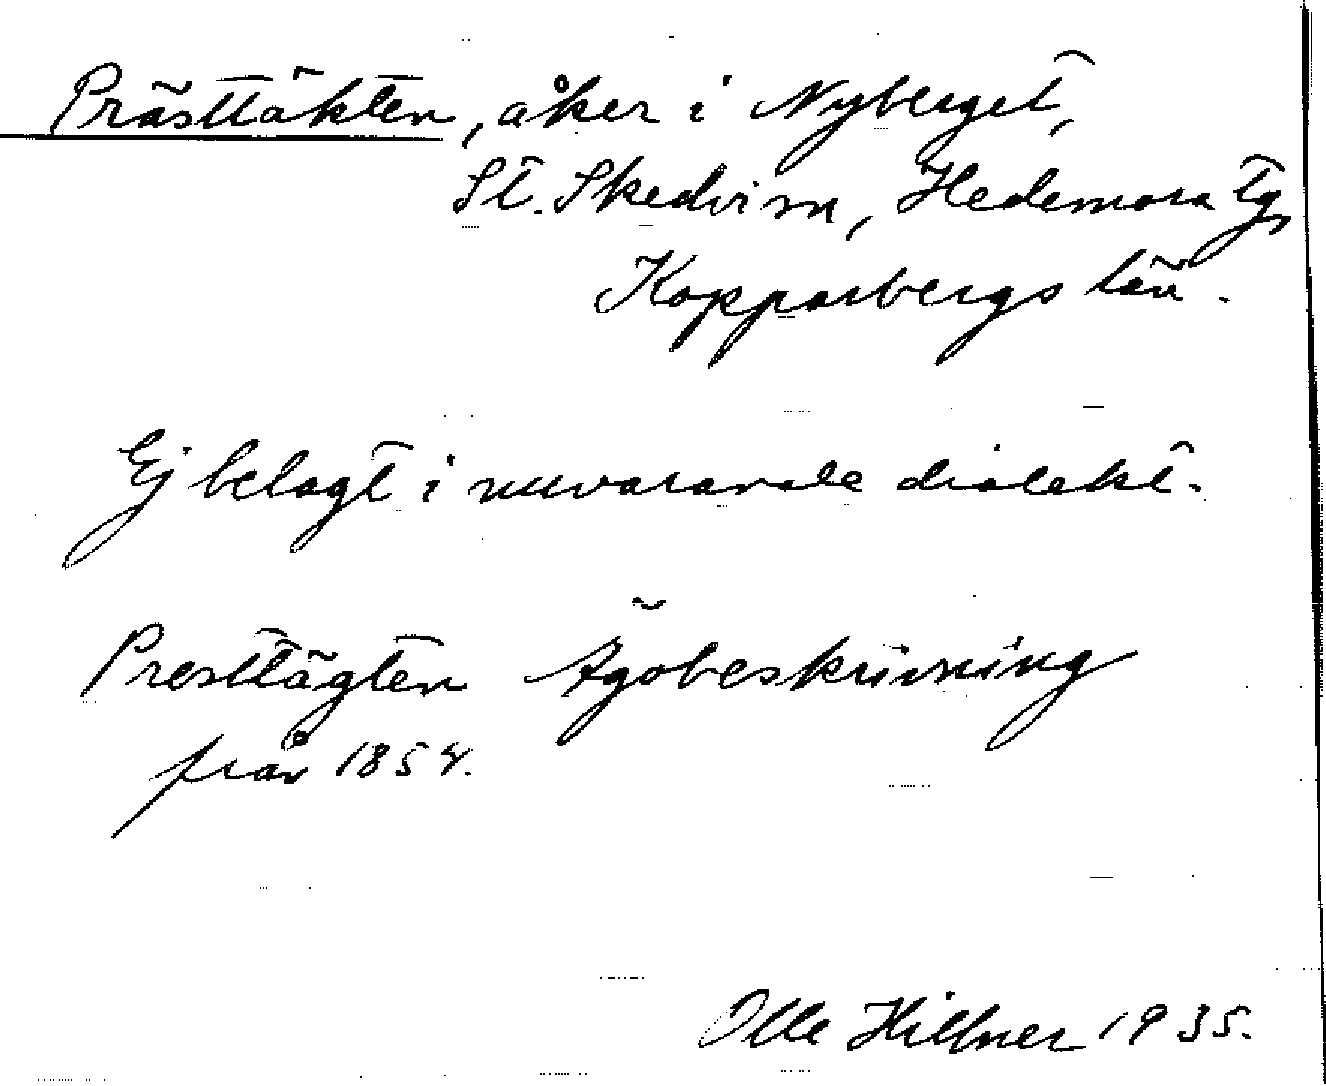 Prästtäkten, åker i Nyberget,
St. Skedvi sn, Hedemora tg,
Kopparbergs län.
Ej belagt i nuvarande dialekt.
Presttägten Ägobeskrivning
från 1854.
Olle Hillner 1935.